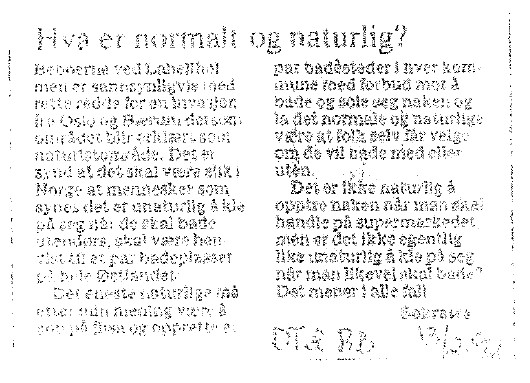 Hva er normalt og naturlig?
Beboerne ved
men er sannsynligvis med
rette redde for en invasjon
fra Oslo og Bærum dersom
området blir erklært som
naturistområde. Det er
synd at det skal være slik i
Norge at mennesker som
synes det er unaturlig å kle
på seg når de skal bade
utendørs, skal være hen-
vist til et par badeplasser
på hele Østlandet.
Det eneste naturlige må
etter min mening være å
snu på flisa og opprette et
par badesteder i hver kom-
mune med forbud mot å
bade og sole seg naken og
la det normale og naturlige
være at folk selv får velge
om de vil bade med eller
uten.
Det er ikke naturlig å
opptre naken når man skal
handle på supermarkedet
men er det ikke egentlig
like unaturlig å kle på seg
når man likevel skal bade?
Det mener i alle fall
Sokrates